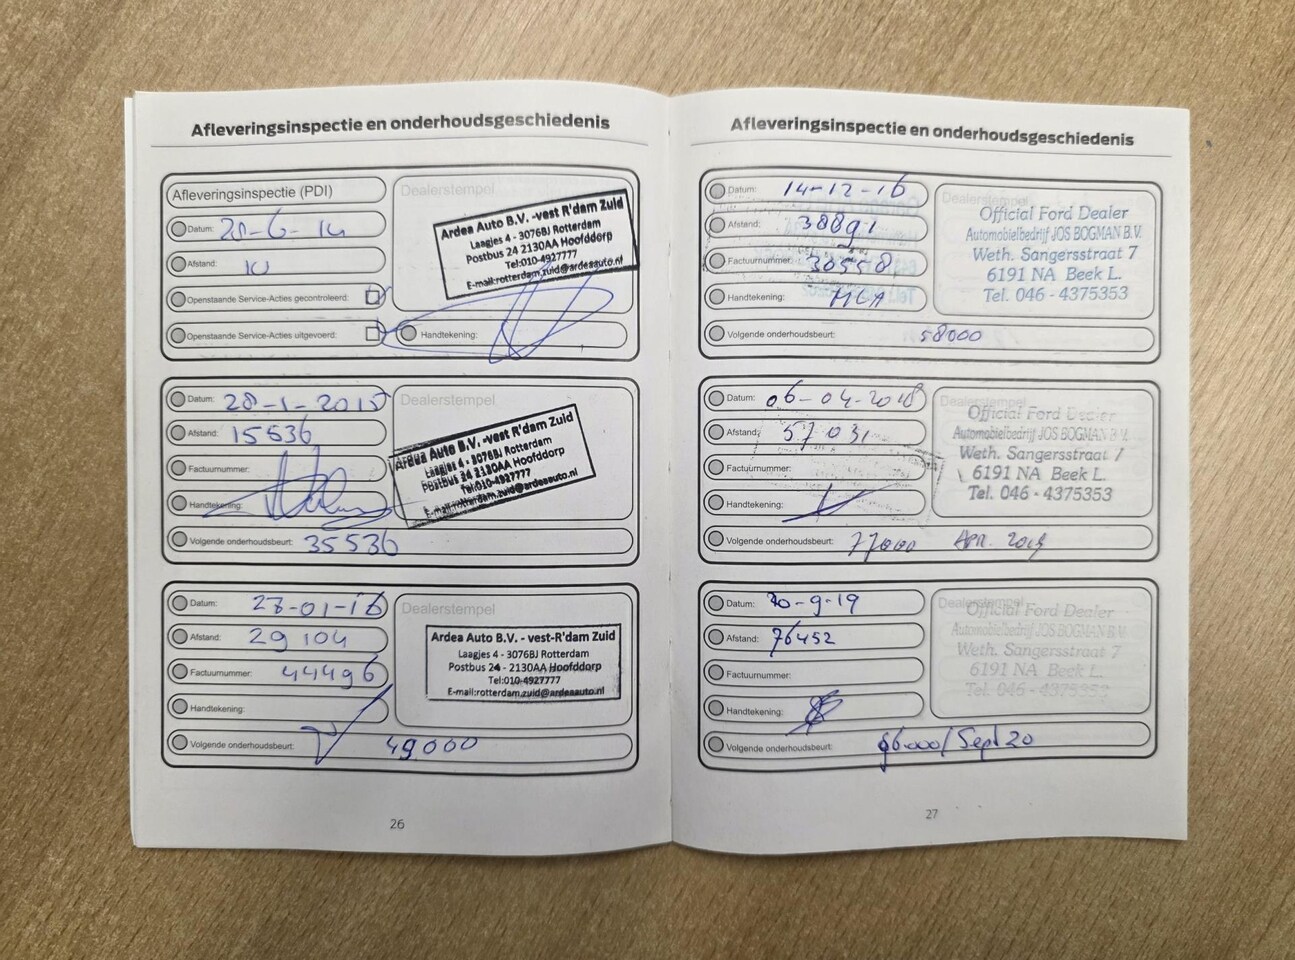 Afleveringsinspectie en onderhoudsgeschiedenis
Afleveringsinspectie (PDI)
Datum: 20-6-14
Afstand: 10
Openstaande Service-Acties gecontroleerd:
Openstaande Service-Acties uitgevoerd:
Dealerstempel
Ardea Auto B.V. -vest R'dam Zuid
Laagjes 4 - 3076BJ Rotterdam
Postbus 24 2130AA Hoofddorp
Tel:010-4927777
E-mail:rotterdam.zuid@ardeaauto.nl
Handtekening:
Datum: 28-1-2015
Afstand: 15536
Factuurnummer:
Handtekening:
Volgende onderhoudsbeurt: 35536
Dealerstempel
Ardea Auto B.V. -vest R'dam Zuid
Laagjes 4 - 3076BJ Rotterdam
Postbus 24 2130AA Hoofddorp
Tel:010-4927777
E-mail:rotterdam.zuid@ardeaauto.nl
Datum: 27-01-16
Afstand: 29104
Factuurnummer: 44496
Handtekening:
Volgende onderhoudsbeurt: 49000
Dealerstempel
Ardea Auto B.V. - vest-R'dam Zuid
Laagjes 4 - 3076BJ Rotterdam
Postbus 24 - 2130AA Hoofddorp
Tel:010-4927777
E-mail:rotterdam.zuid@ardeaauto.nl
26
Afleveringsinspectie en onderhoudsgeschiedenis
Datum: 14-12-16
Afstand: 38891
Factuurnummer: 30558
Handtekening:
Volgende onderhoudsbeurt: 58000
Dealerstempel
Official Ford Dealer
Automobielbedrijf JOS BOGMAN B.V.
Weth. Sangersstraat 7
6191 NA Beek L.
Tel. 046 - 4375353
Datum: 06-04-2018
Afstand: 57031
Factuurnummer:
Handtekening:
Volgende onderhoudsbeurt: 77000 Apr. 2019
Dealerstempel
Official Ford Dealer
Automobielbedrijf JOS BOGMAN B.V.
Weth. Sangersstraat 7
6191 NA Beek L.
Tel. 046 - 4375353
Datum: 20-9-19
Afstand: 76452
Factuurnummer:
Handtekening:
Volgende onderhoudsbeurt: 96.000/Sept 20
Dealerstempel
Official Ford Dealer
Automobielbedrijf JOS BOGMAN B.V.
Weth. Sangersstraat 7
6191 NA Beek L.
Tel. 046 - 4375353
27